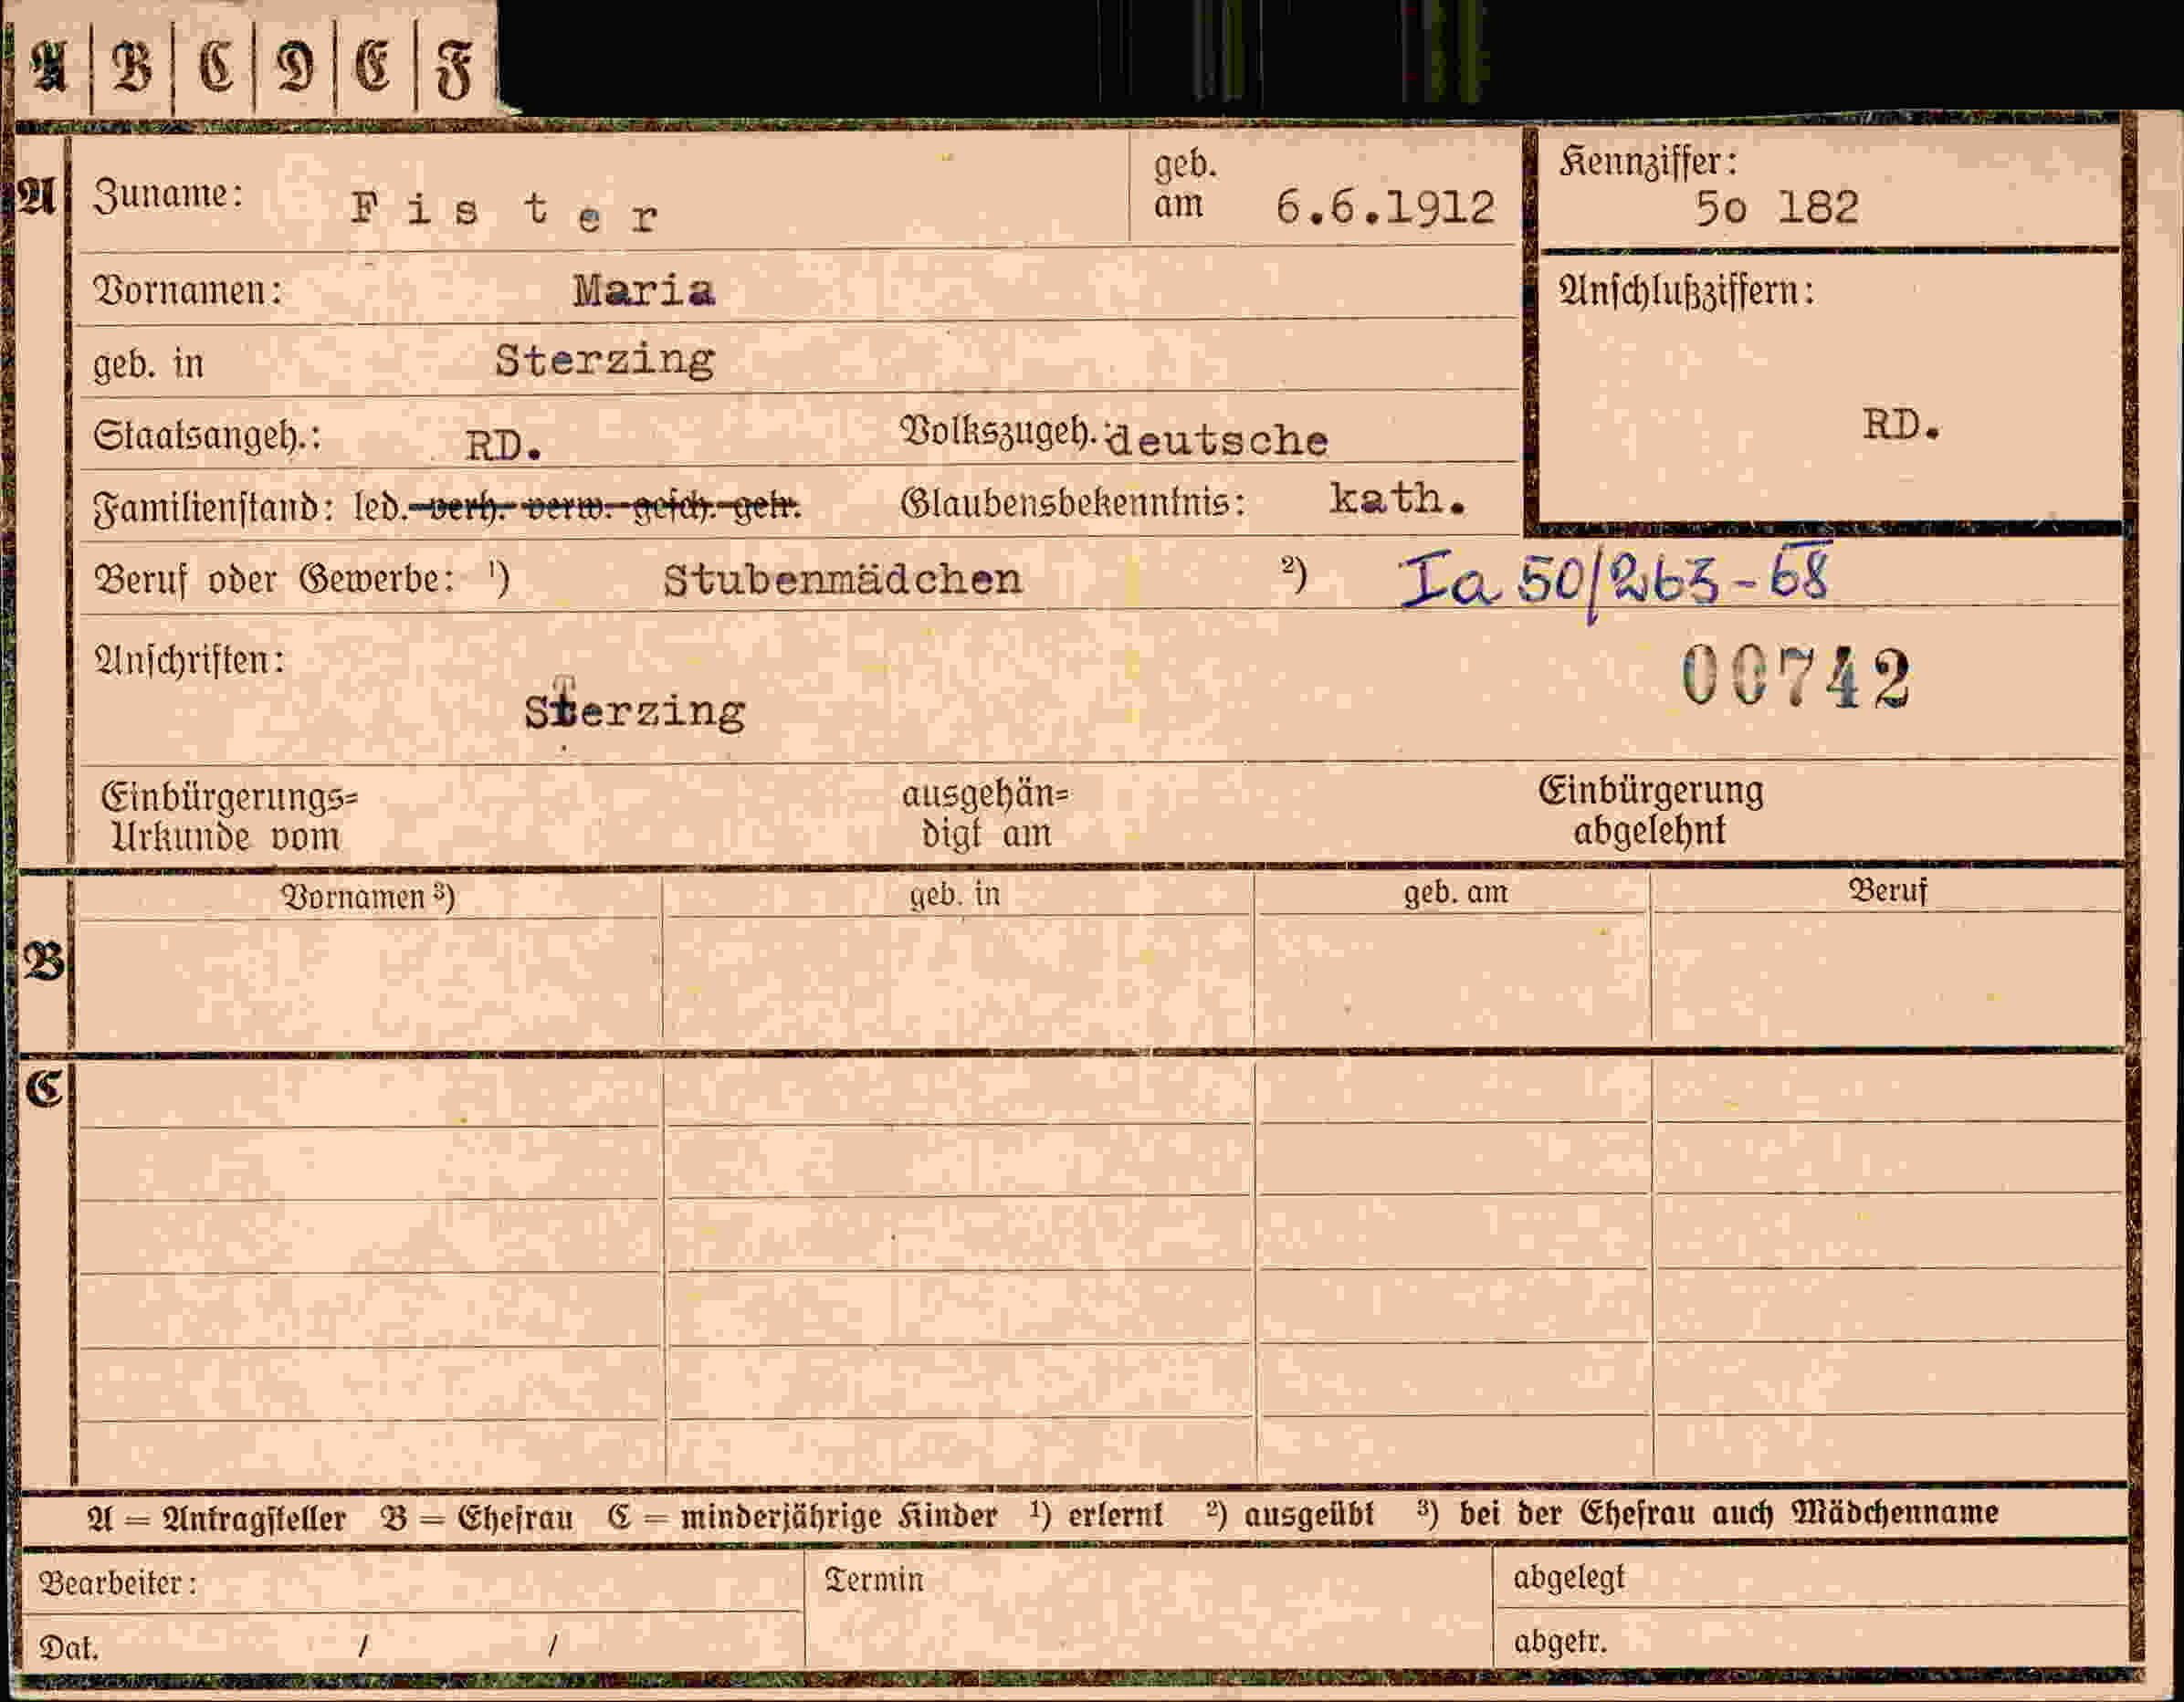 A | B | C | D | E | F
A Zuname: Fister geb. am 6.6.1912 Kennziffer: 5o 182
Vornamen: Maria Anschlußziffern:
geb. in Sterzing
Staatsangeh.: RD. Volkszugeh.: deutsche RD.
Familienstand: led. verh. verw. gesch. getr. Glaubensbekenntnis: kath.
Beruf oder Gewerbe: 1) Stubenmädchen 2) Ia 50/263-68
Anschriften: 00742
Sterzing
Einbürgerungs= ausgehän= Einbürgerung
Urkunde vom digt am abgelehnt
Vornamen 3) geb. in geb. am Beruf
B
C
A = Antragsteller B = Ehefrau C = minderjährige Kinder 1) erlernt 2) ausgeübt 3) bei der Ehefrau auch Mädchenname
Bearbeiter: Termin abgelegt
Dat. / / abgetr.